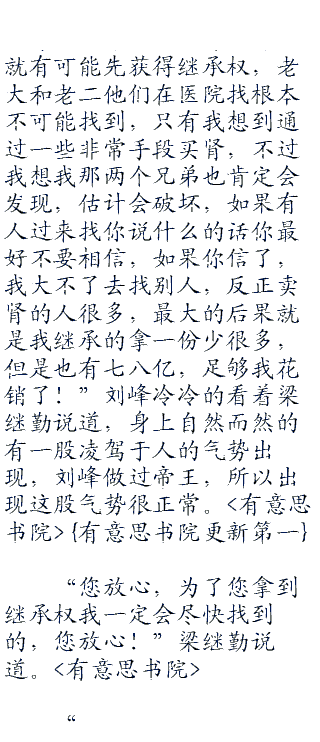 就有可能先获得继承权，老
大和老二他们在医院找根本
不可能找到，只有我想到通
过一些非常手段买肾，不过
我想我那两个兄弟也肯定会
发现，估计会破坏，如果有
人过来找你说什么的话你最
好不要相信，如果你信了，
我大不了去找别人，反正卖
肾的人很多，最大的后果就
是我继承的拿一份少很多，
但是也有七八亿，足够我花
销了！” 刘峰冷冷的看着梁
继勤说道，身上自然而然的
有一股凌驾于人的气势出
现，刘峰做过帝王，所以出
现这股气势很正常。<有意思
书院>{有意思书院更新第一}
“您放心，为了您拿到
继承权我一定会尽快找到
的，您放心！” 梁继勤说
道。<有意思书院>
“